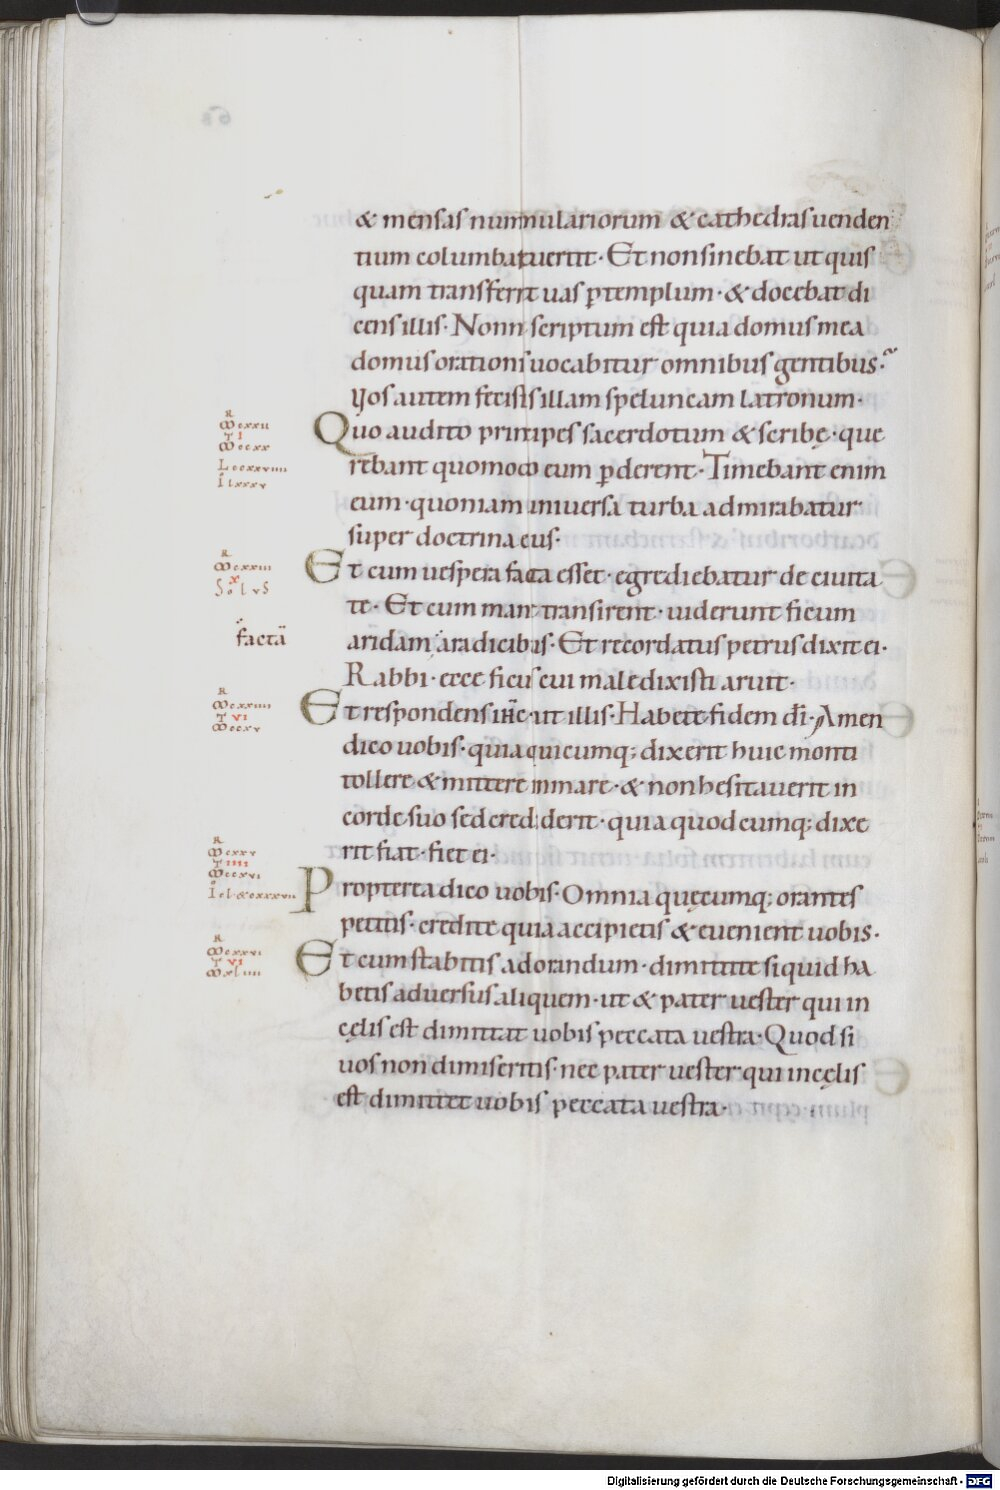 & mensas nummulariorum & cathedras uenden
tium columbas uertit · Et non sinebat ut quis
quam transferret uas ꝑ templum · & docebat di
cens illis · Nonn scriptum est quia domus mea
domus orationis uocabitur omnibus gentibus ·
Uos autem fecistis illam speluncam latronum ·
Quo audito principes sacerdotum & scribę · que
rebant quomodo eum ꝑderent · Timebant enim
eum · quoniam uniuersa turba admirabatur
super doctrina eius ·
Et cum uespera facta esset · egrediebatur de ciuita
te · Et cum mane transirent · uiderunt ficum
factā
aridam aradicibus · Et recordatus petrus dixit ei ·
Rabbi · ecce ficus cui maledixisti aruit ·
Et respondens ihc̄ · ait illis · Habete fidem dī · Amen
dico uobis · quia quicumq; dixerit huic monti
tollere & mittere in mare · & non hesitauerit in
corde suo sed crediderit · quia quodcumq; dixe
rit fiat · fiet ei ·
Propterea dico uobis · Omnia quęcumq; orantes
petitis · credite quia accipietis & euenient uobis ·
Et cum stabitis adorandum · dimittite siquid ha
betis aduersus aliquem · ut & pater uester qui in
cęlis est dimittat uobis peccata uestra · Quod si
uos non dimiseritis · nec pater uester qui in cęlis
est dimittet uobis peccata uestra ·
Digitalisierung gefördert durch die Deutsche Forschungsgemeinschaft - DFG